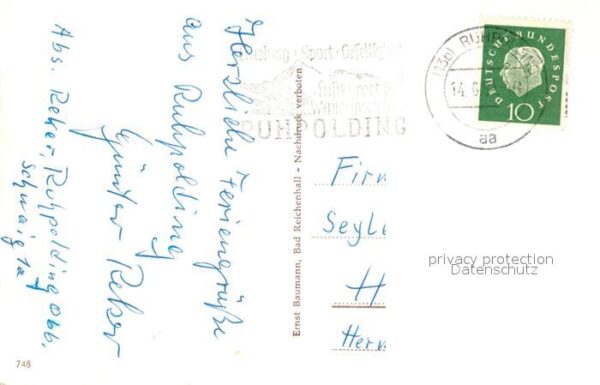 Herzliche Feriengrüße
aus Ruhpolding
Günter Reker
Abs. Reker, Ruhpolding Obb.
Schwaig 1a
Sport · Geselligkeit
RUHPOLDING
DEUTSCHE BUNDESPOST
10
aa
Ernst Baumann, Bad Reichenhall - Nachdruck verboten
Firm
Seyle
H
Herv
privacy protection
Datenschutz
748